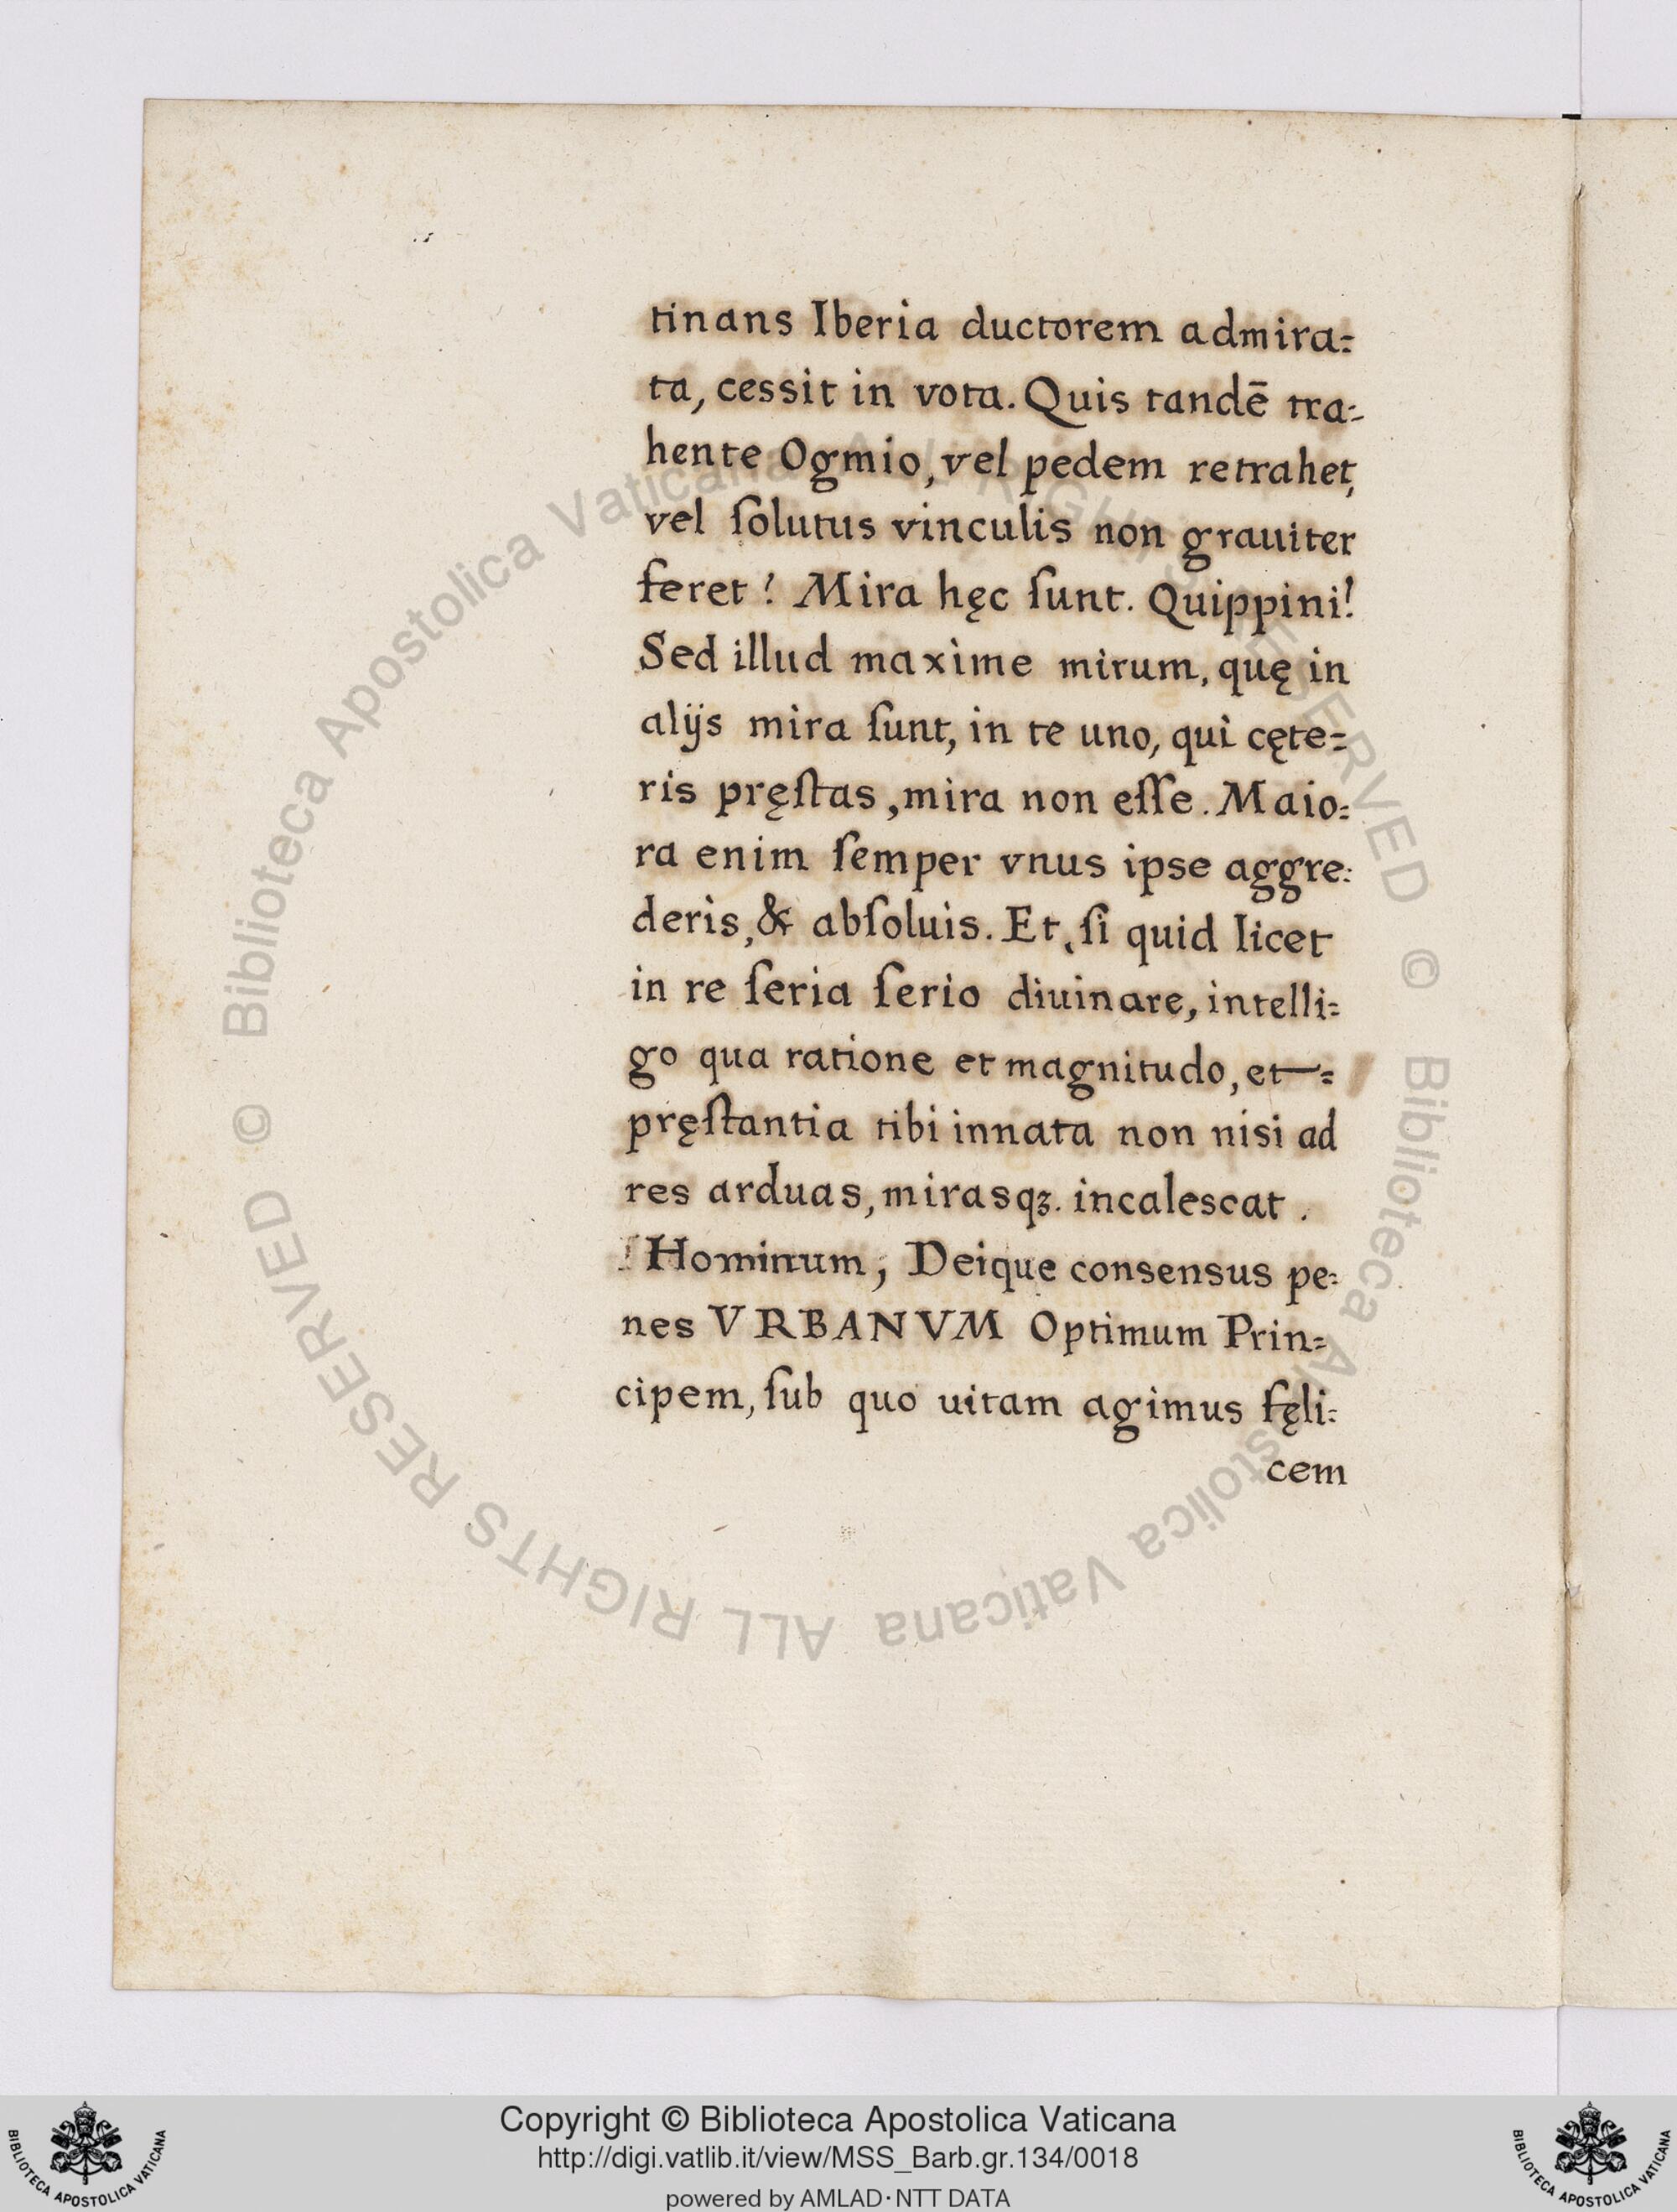 tinans Iberia ductorem admira=
ta, cessit in vota. Quis tandē tra=
hente Ogmio, vel pedem retrahet,
vel ſolutus vinculis non grauiter
feret? Mira hęc ſunt. Quippini?
Sed illud maxime mirum, quę in
alijs mira ſunt, in te uno, qui cęte=
ris pręſtas, mira non eſſe. Maio=
ra enim ſemper vnus ipse aggre=
deris, & abſoluis. Et, ſi quid licet
in re ſeria ſerio diuinare, intelli=
go qua ratione et magnitudo, et—=
pręſtantia tibi innata non nisi ad
res arduas, mirasqꝫ. incalescat.
Hominum, Deique consensus pe=
nes VRBANVM Optimum Prin=
cipem, ſub quo uitam agimus fęli=
cem
© Biblioteca Apostolica Vaticana ALL RIGHTS RESERVED
© Biblioteca Apostolica Vaticana ALL RIGHTS RESERVED
Copyright © Biblioteca Apostolica Vaticana
http://digi.vatlib.it/view/MSS_Barb.gr.134/0018
powered by AMLAD·NTT DATA
BIBLIOTECA APOSTOLICA VATICANA
BIBLIOTECA APOSTOLICA VATICANA